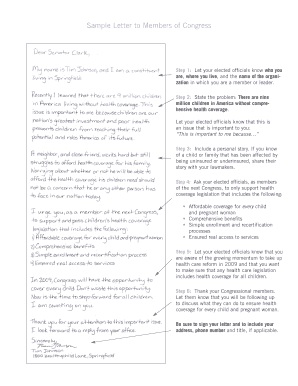 Sample Letter to Members of Congress
Dear Senator Clark,
My name is Tim Jamson, and I am a constituent
living in Springfield.
Recently I learned that there are 9 million children
in America living without health coverage. This
issue is important to me because children are our
nation's greatest investment and poor health
prevents children from reaching their full
potential and risks the future of us all.
A neighbor, and close friend, works hard but still
struggles to afford health coverage for his family.
Worrying about whether or not he will be able to
afford the health coverage his children need should
not be a concern that he or any other person has
to face in our nation today.
I urge you, as a member of the next Congress,
to support and pass children's health coverage
legislation that includes the following:
1) Affordable coverage for every child and pregnant woman
2) Comprehensive benefits
3) Simple enrollment and recertification process
4) Ensured real access to services
In 2009, Congress will have the opportunity to
cover every child. Don't waste this opportunity.
Now is the time to step forward for all children.
I am counting on you.
Thank you for your attention to this important issue.
I look forward to a reply from your office.
Sincerely,
Tim Jamson
Springfield
Step 1: Let your elected officials know who you
are, where you live, and the name of the organi-
zation in which you are a member or leader.
Step 2: State the problem. There are nine
million children in America without compre-
hensive health coverage.
Let your elected officials know that this is
an issue that is important to you:
"This is important to me because..."
Step 3: Include a personal story. If you know
of a child or family that has been affected by
being uninsured or underinsured, share their
story with your lawmakers.
Step 4: Ask your elected officials, as members
of the next Congress, to only support health
coverage legislation that includes the following:
• Affordable coverage for every child
and pregnant women
• Comprehensive benefits
• Simple enrollment and recertification
processes
• Ensured real access to services
Step 5: Let your elected officials know that you
are aware of the growing momentum to take up
health care reform in 2009 and that you want
to make sure that any health care legislation
includes health coverage for all children.
Step 6: Thank your Congressional members.
Let them know that you will be following up
to discuss what they can do to ensure health
coverage for every child and pregnant woman.
Be sure to sign your letter and to include your
address, phone number and title, if applicable.